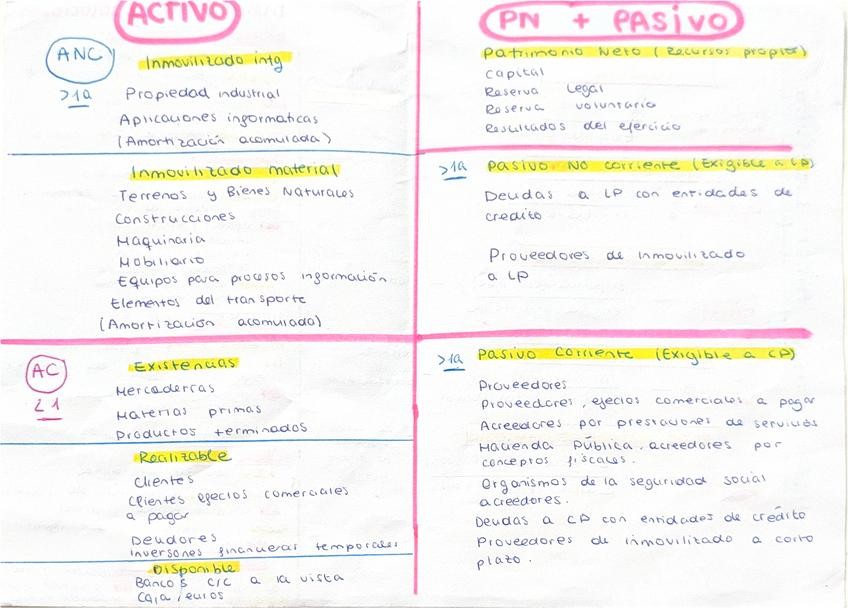 ACTIVO
ANC
>1a
Inmovilizado intg
Propiedad industrial
Aplicaciones informaticas
(Amortización acomulada)
Inmovilizado material
Terrenos y Bienes Naturales
Construcciones
Maquinaria
Mobiliario
Equipos para procesos información
Elementos del transporte
(Amortización acomulada)
AC
<1
Existencias
Mercaderras
Materias primas
Productos terminados
Realizable
Clientes
Clientes efectos comerciales
a pagar
Deudores
Inversones financieras temporales
Disponible
Bancos c/c a la vista
Caja, euros
PN + PASIVO
Patrimonio Neto (Recursos propios)
Capital
Reserva Legal
Reserva voluntaria
Resultados del ejercicio
>1a
Pasivo No corriente (Exigible a LP)
Deudas a LP con entidades de
credito
Proveedores de Inmovilizado
a LP
>1a
Pasivo Corriente (Exigible a CP)
Proveedores
Proveedores, efecios comerciales a pagar
Acreedores por prestaciones de servicios
Hacienda Pública, acreedores por
conceptos fiscales.
Organismos de la seguridad social
acreedores.
Deudas a CP con entidades de crédito
Proveedores de inmovilizado a corto
plazo.